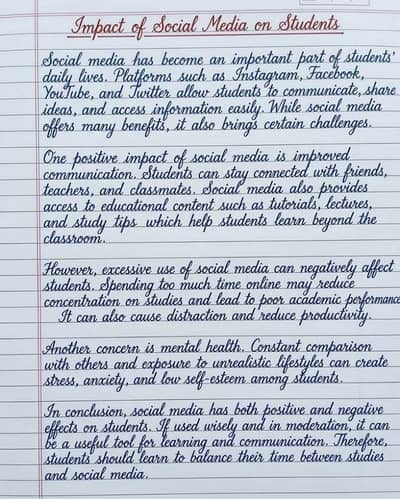 Impact of Social Media on Students
Social media has become an important part of students'
daily lives. Platforms such as Instagram, Facebook,
YouTube, and Twitter allow students to communicate, share
ideas, and access information easily. While social media
offers many benefits, it also brings certain challenges.
One positive impact of social media is improved
communication. Students can stay connected with friends,
teachers, and classmates. Social media also provides
access to educational content such as tutorials, lectures,
and study tips which help students learn beyond the
classroom.
However, excessive use of social media can negatively affect
students. Spending too much time online may reduce
concentration on studies and lead to poor academic performance
It can also cause distraction and reduce productivity.
Another concern is mental health. Constant comparison
with others and exposure to unrealistic lifestyles can create
stress, anxiety, and low self-esteem among students.
In conclusion, social media has both positive and negative
effects on students. If used wisely and in moderation, it can
be a useful tool for learning and communication. Therefore,
students should learn to balance their time between studies
and social media.